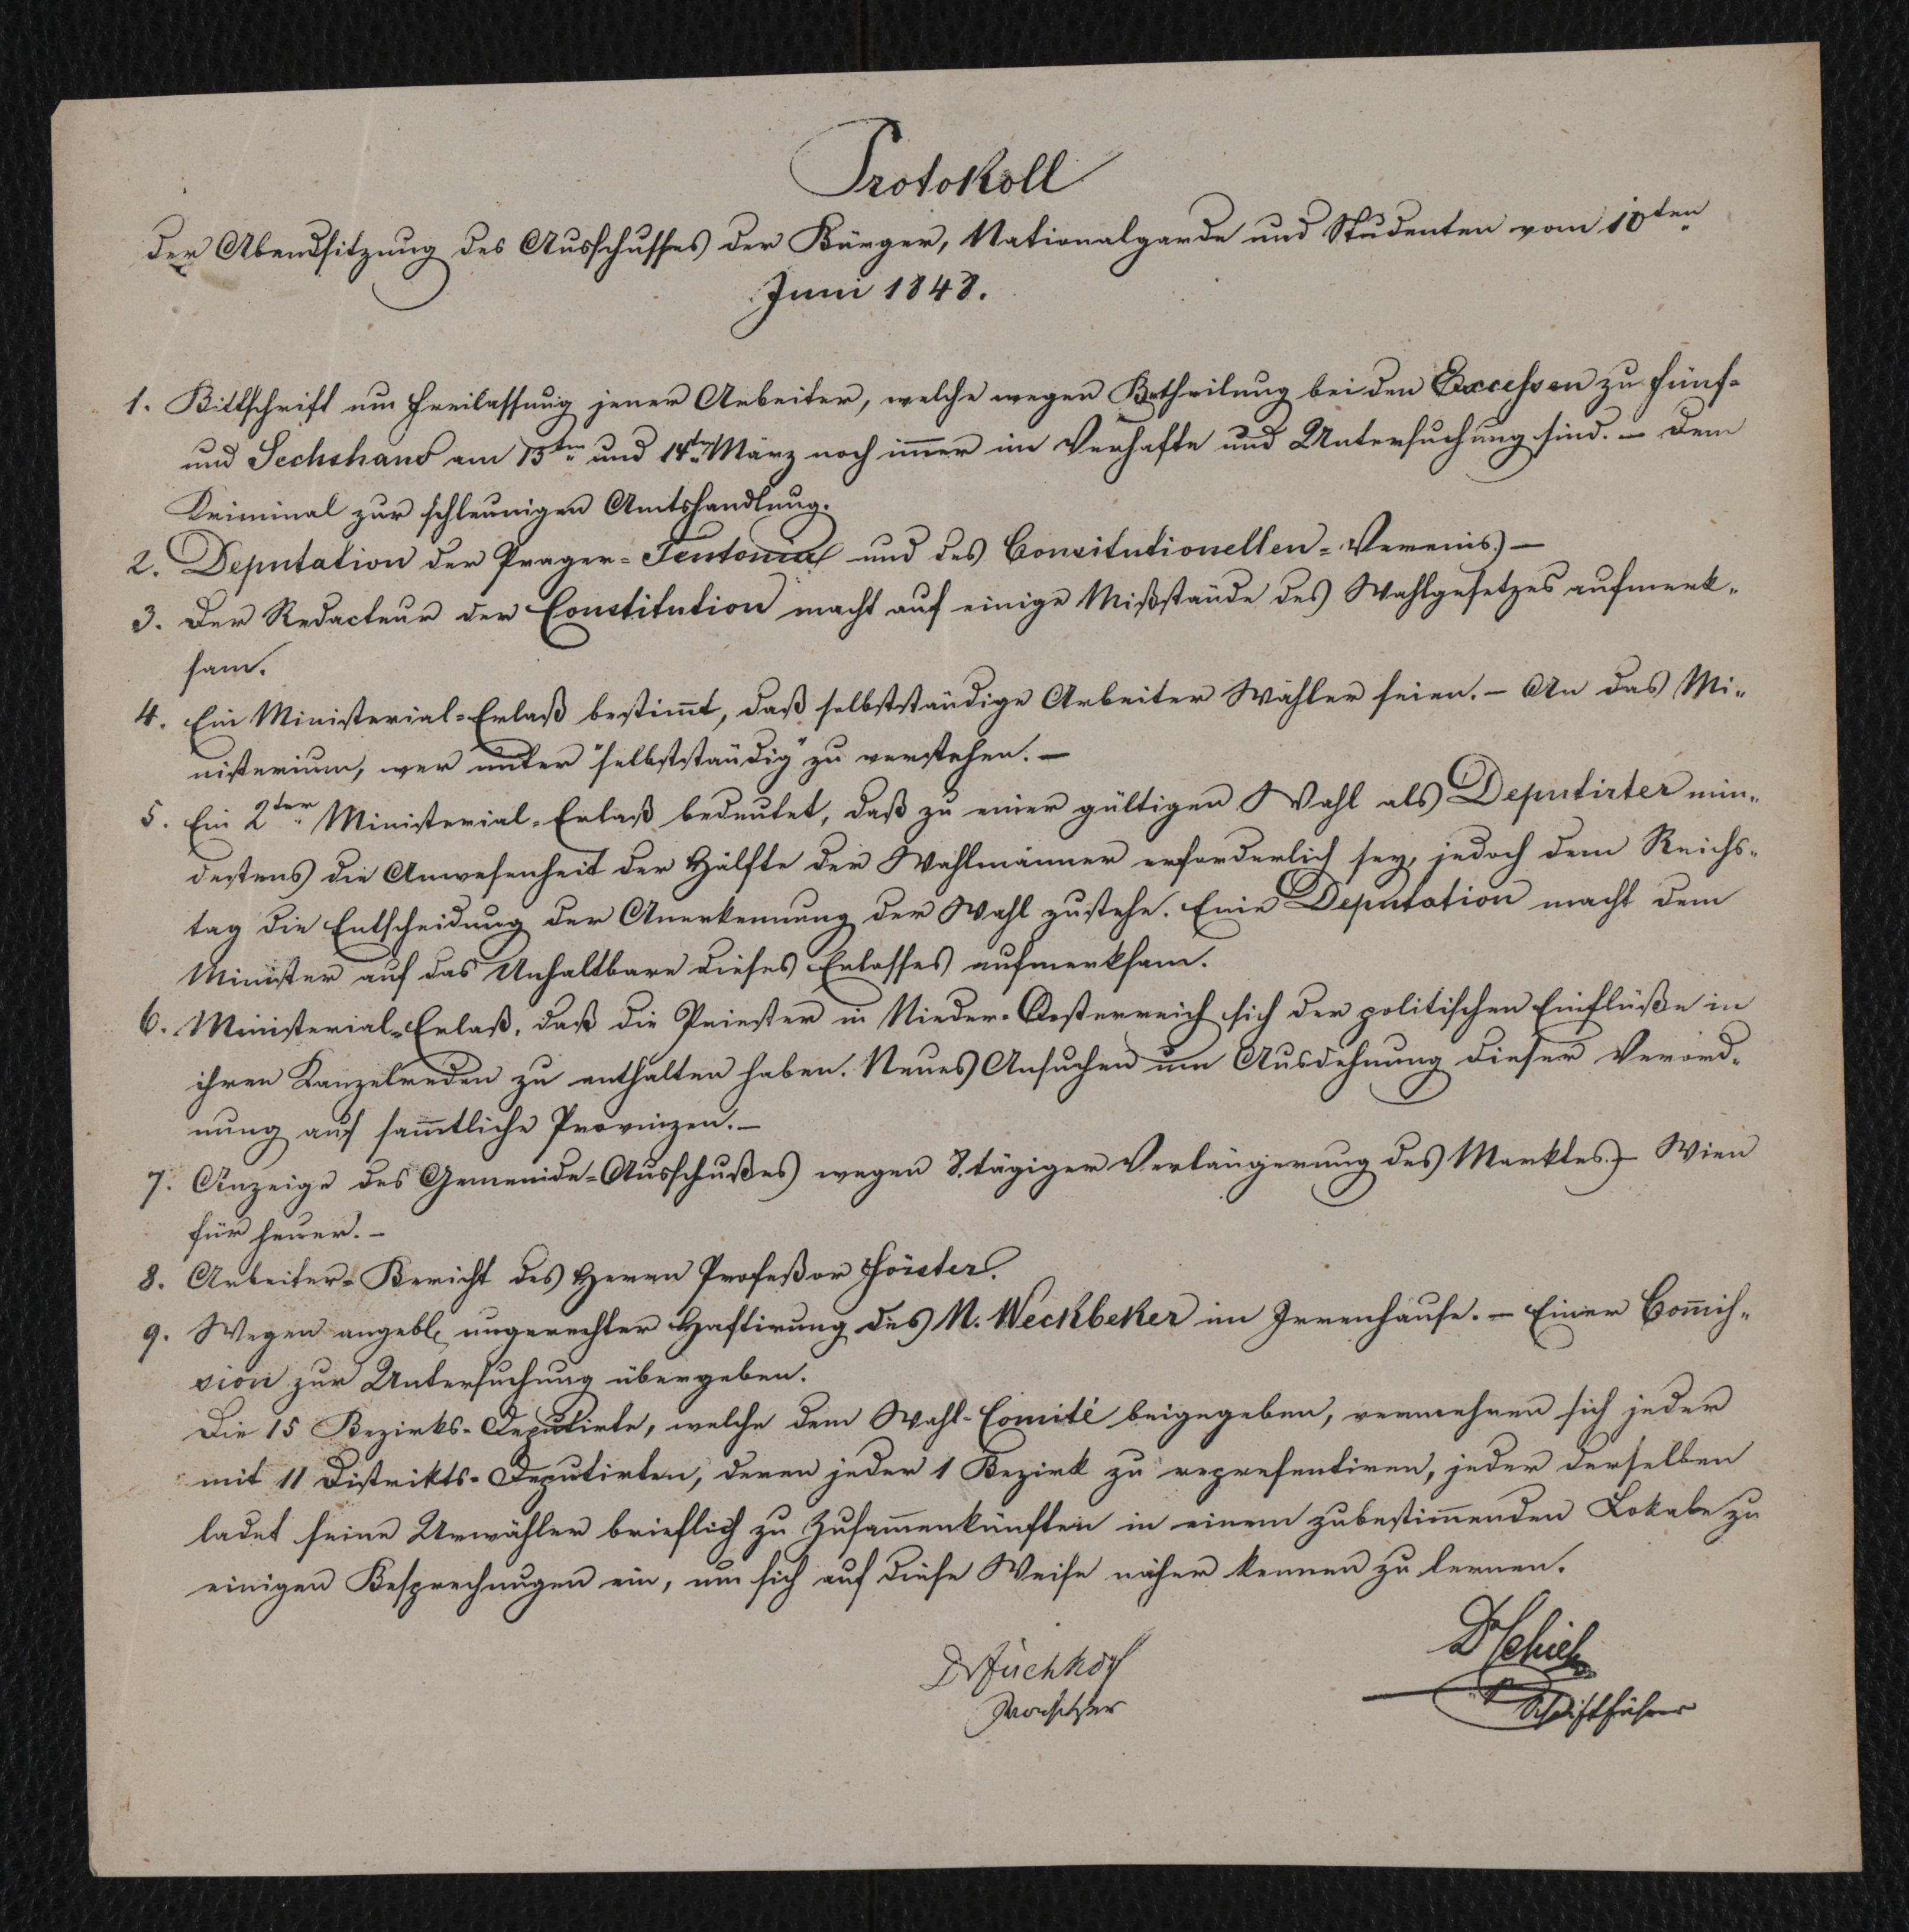 Protokoll
der Abendsitzung des Ausschusses der Bürger, Nationalgarde und Studenten vom 10ten
Juni 1848.
1. Bittschrift um Freilassung jener Arbeiter, welche wegen Betheilung bei den Excessen zu Fünf-
und Sechshaus am 13ten und 14ten März noch im̄er im Verhafte und Untersuchung sind. – Dem
Kriminal zur schleunigen Amtshandlung.
2. Deputation der Prager-Teutonia und des Consitutionellen-Vereins. –
3. Der Redacteur der Constitution macht auf einige Mißstände des Wahlgesetzes aufmerk-
sam.
4. Ein Ministerial-Erlaß bestim̄t, daß selbstständige Arbeiter Wähler seien. – An das Mi-
nisterium, wer unter "selbstständig" zu verstehen. –
5. Ein 2ter Ministerial-Erlaß bedeutet, daß zu einer gültigen Wahl als Deputirter min-
destens die Anwesenheit der Hälfte der Wahlmänner erforderlich sey, jedoch dem Reichs-
tag die Entscheidung der Anerkennung der Wahl zustehe. Eine Deputation macht dem
Minister auf das Unhaltbare dieses Erlasses aufmerksam.
6. Ministerial-Erlaß, daß die Priester in Nieder-Oesterreich sich der politischen Einflüße in
ihren Kanzelreden zu enthalten haben. Neues Ansuchen um Ausdehnung dieser Verord-
nung auf sam̄tliche Provinzen. –
7. Anzeige des Gemeinde-Ausschußes wegen 8.tägiger Verlängerung des Marktes. – Wien
für heuer. –
8. Arbeiter-Bericht des Herrn Profeßor Förster.
9. Wegen angebl. ungerechter Haftirung des M. Weckbeker im Irrenhause. – Einer Com̄is-
sion zur Untersuchung übergeben.
Die 15 Bezirks-Deputirte, welche dem Wahl-Comité beigegeben, vermehren sich jeder
mit 11 Distrikts-Deputirten, deren jeder 1 Bezirk zu represendiren, jeder derselben
ladet seine Urwähler brieflich zu Zusam̄enkünften in einem zubestim̄enden Lokale zu
einigen Besprechungen ein, um sich auf diese Weise näher kennen zu lernen.
Dr Schick
Dr Fischhof
Schriftführer
Vorsitzer